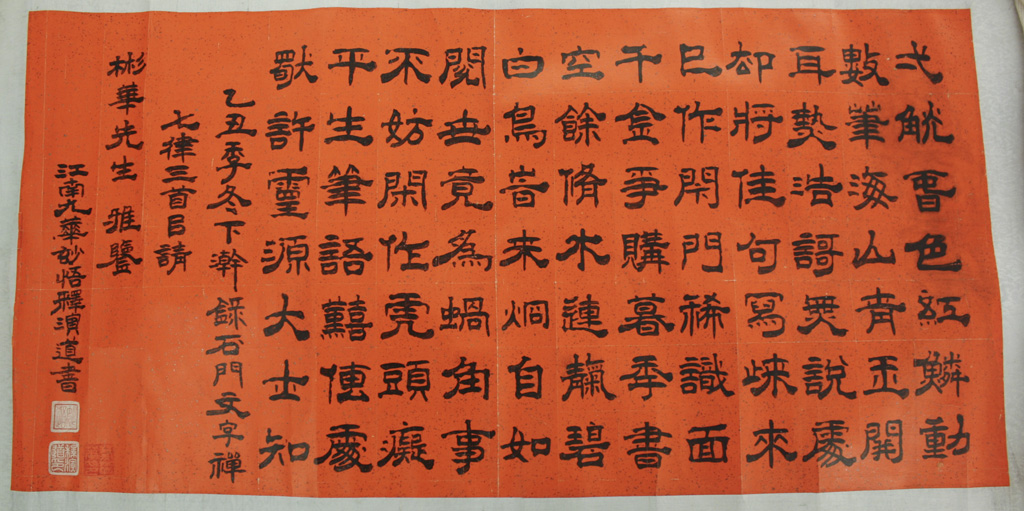 弌觥春色紅鱗動
數筆海山青玉開
耳熱浩謌無說處
却將佳句寫歸來
已作閑門稀識面
千金爭購暮年書
空餘脩水連靝碧
白鳥旹來炯自如
閱世竟為蝸角事
不妨閑作虎頭癡
平生筆語囏傳處
獨許靈源大士知
乙丑季冬下澣錄石門文字禪
七律三首㠯請
彬華先生 雅鑒
江南九華妙悟釋渭道書